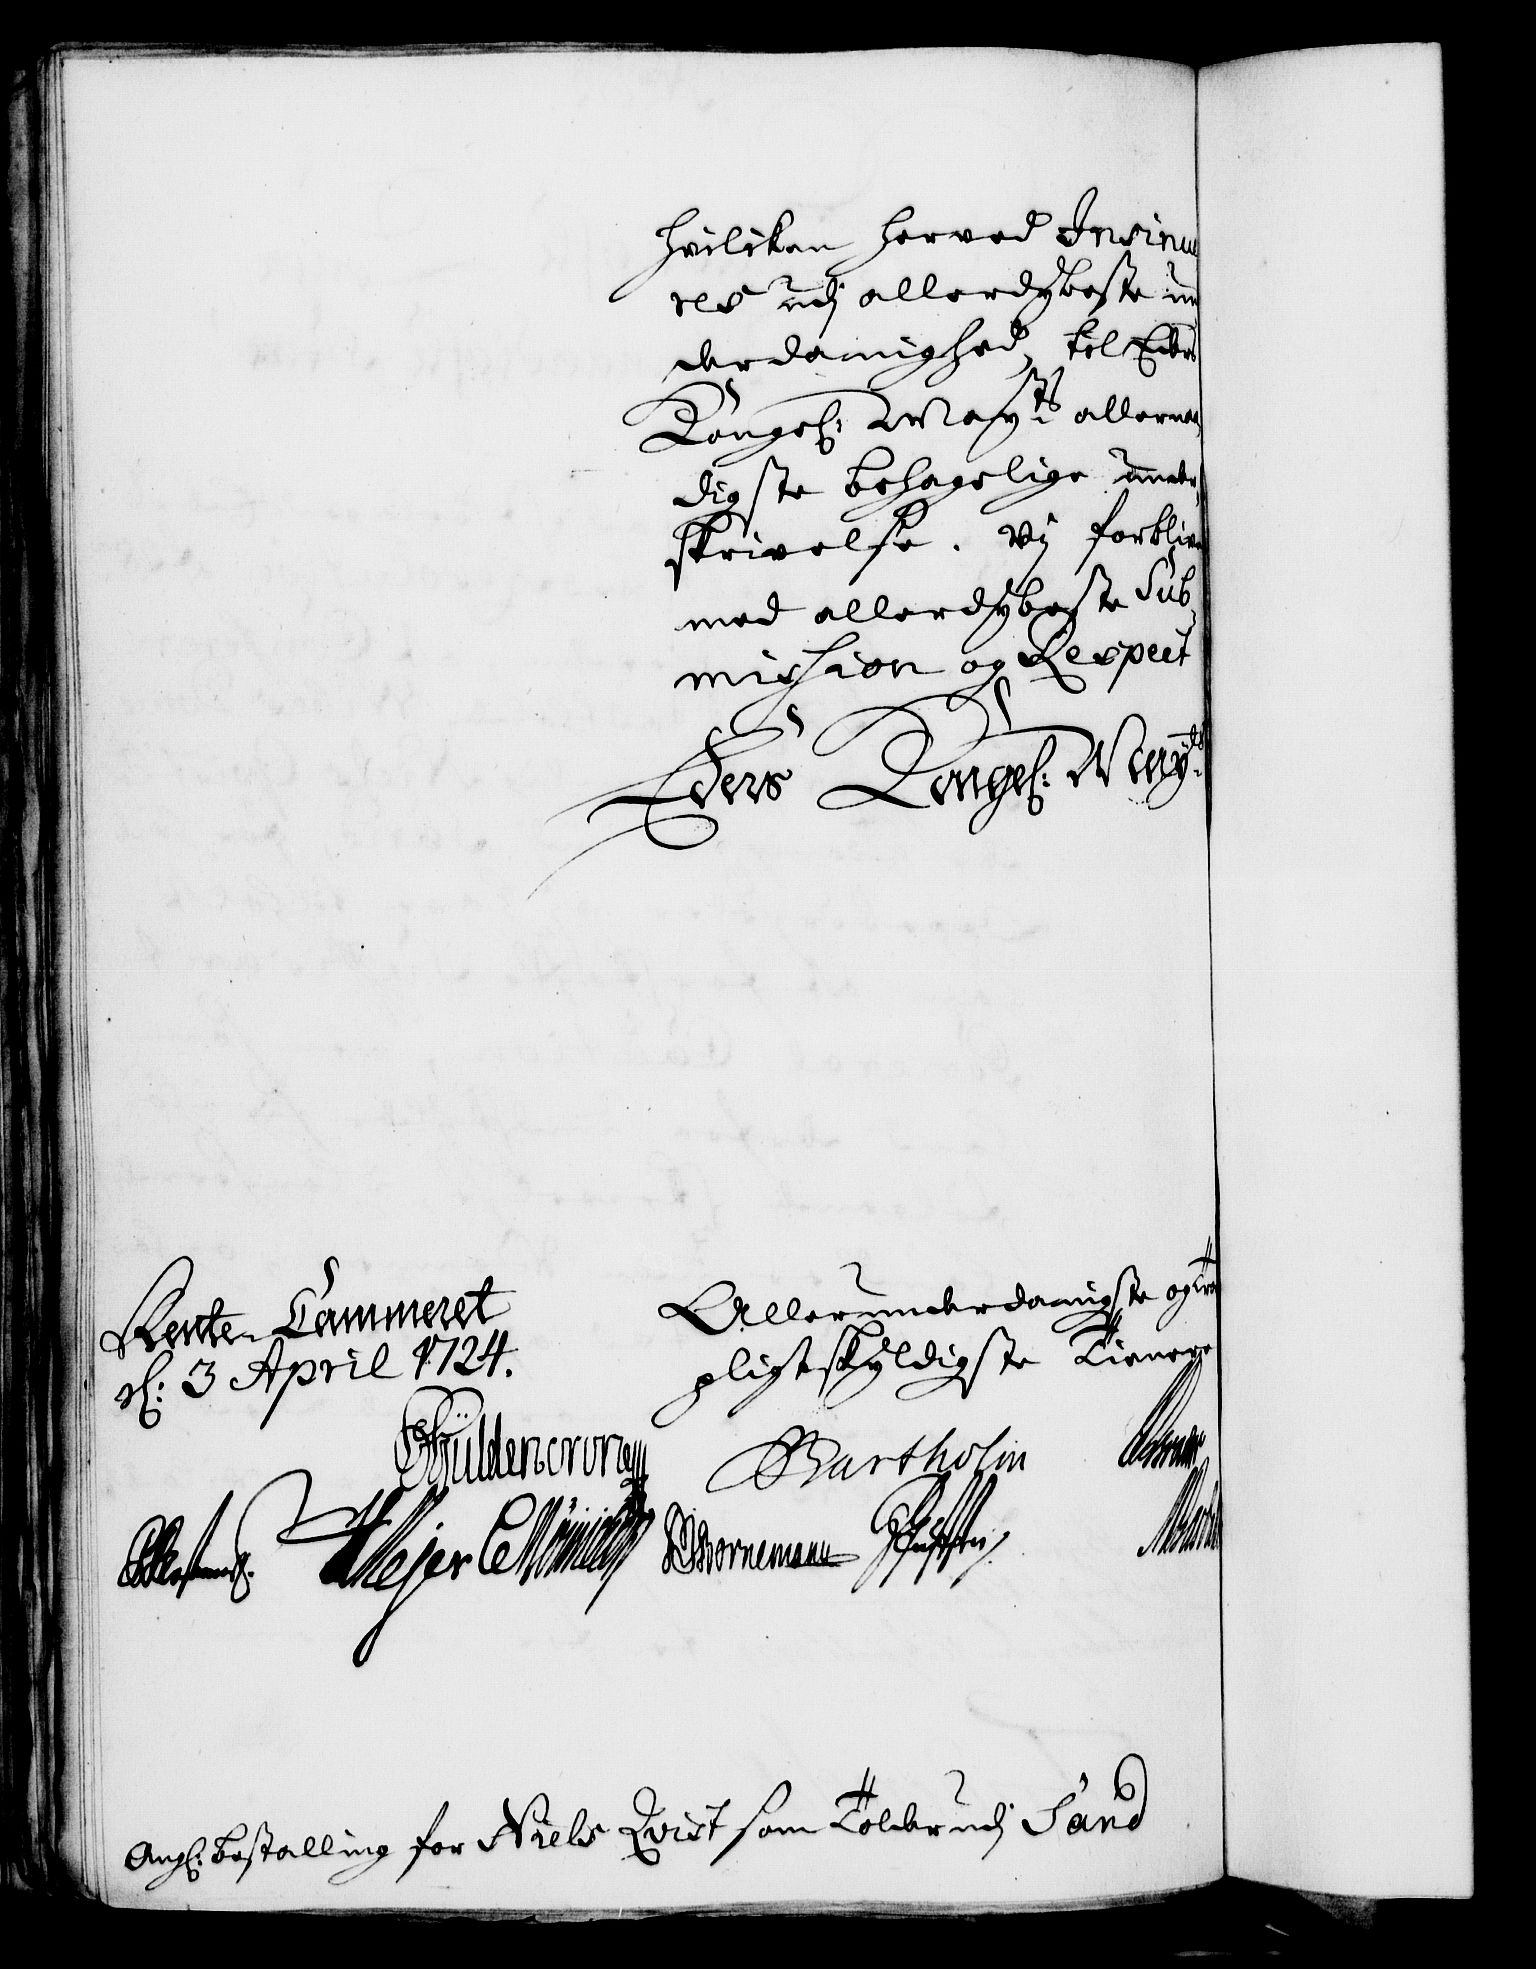 hvilken herved Insinue
res udj allerdybeste un
derdanighed, til Eders
Kongel: Mayts allernaa
digste behagelige under
skrivelse. Vij forblive
med allerdybeste Sub
mission og Respect
Eders Kongel: Mayts
Rente-Cammeret
d: 3 April 1724.
Allerunderdanigste og tro
pligtskyldigste Tienere
Güldencrone
Bartholin
Meyer
Bornemann
Angl: bestalling for Niels Qvist som Tolder udj Sand